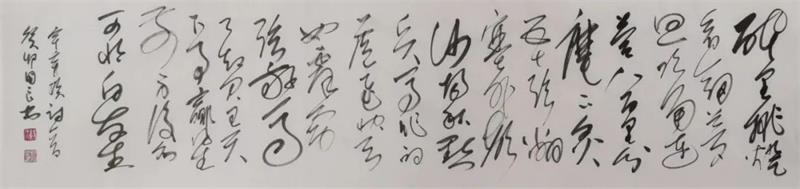 醉里挑灯
看剑梦
回吹角连
营八百里分
麾下炙
五十弦翻
塞外声
沙场秋点
兵马作的
卢飞快弓
如霹雳
弦惊
了却君王天
下事赢得生
前身后名
可怜白发生
辛弃疾词一首
癸卯 书